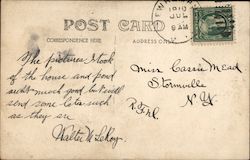 POST CARD
CORRESPONDENCE HERE
ADDRESS ONLY
1910
JUL
9 AM
The pictures I took
of the house and pond
aren't much good but will
send some later such
as they are
Walter W. LeRoy
Miss Carrie Mead
Stormville
N.Y.